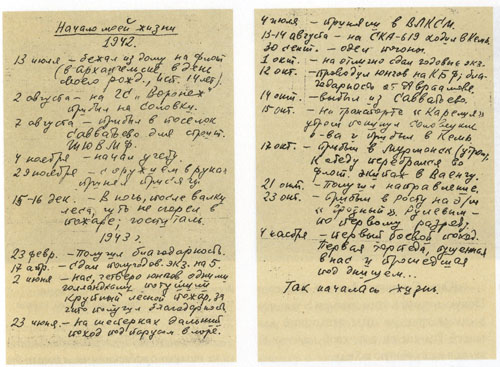 Начало моей жизни
1942.
13 июля – бежал из дому на флот
(в Архангельске в день
своего рожд., исп. 14 лет).
2 августа – на ГС "Воронеж"
прибыл на Соловки.
7 августа – прибыл в поселок
Савватьево для строит.
ШЮВМФ.
4 ноября – начал учебу.
29 ноября – с оружием в руках
принял присягу.
15-16 дек. – В ночь, после валки
леса, чуть не сгорел в
пожаре; госпиталь.
1943 г.
23 февр. – Получил благодарность.
17 апр. – сдал полугодов. экз. на 5.
2 июня – нас, четверо юнгов одними
голландками потушили
крупный лесной пожар, за
что получил благодарность
23 июня. – На шестерках дальний
поход под парусом в море.
4 июля – приняли в ВЛКСМ.
13-14 августа – на СКА-619 ходил в Кемь.
30 сент. – одел погоны.
1 окт. – на отлично сдал годовые экз.
12 окт. – проводил юнгов на КБФ; бла-
годарность от Авраамова.
14 окт. – выбыл из Савватьево.
15 окт. – На транспорте "Карелия"
утром покинул Соловецкие
о-ва и прибыл в Кемь
17 окт. – прибыл в Мурманск (утром),
К обеду перебрался во
флот. экипаж в Ваенгу.
21 окт. – Получил направление.
23 окт. – Прибыл в Росту на э/м
"Грозный" Рулевым –
по первому разряду.
4 ноября – первый боевой поход.
Первая торпеда, пущенная
в нас и прошедшая
под днищем...
Так началась жизнь.